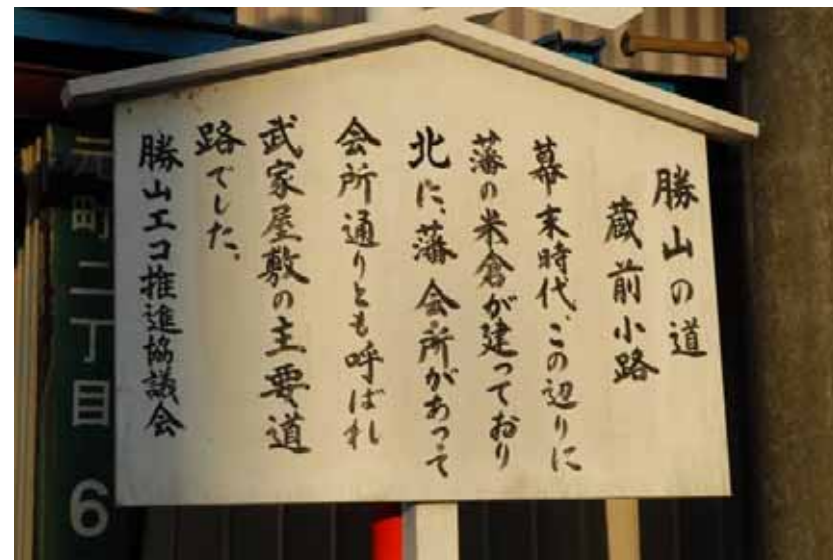 勝山の道
蔵前小路
幕末時代、この辺りに
藩の米倉が建っており
北に、藩会所があって
会所通りとも呼ばれ
武家屋敷の主要道
路でした。
勝山エコ推進協議会
元町二丁目 6